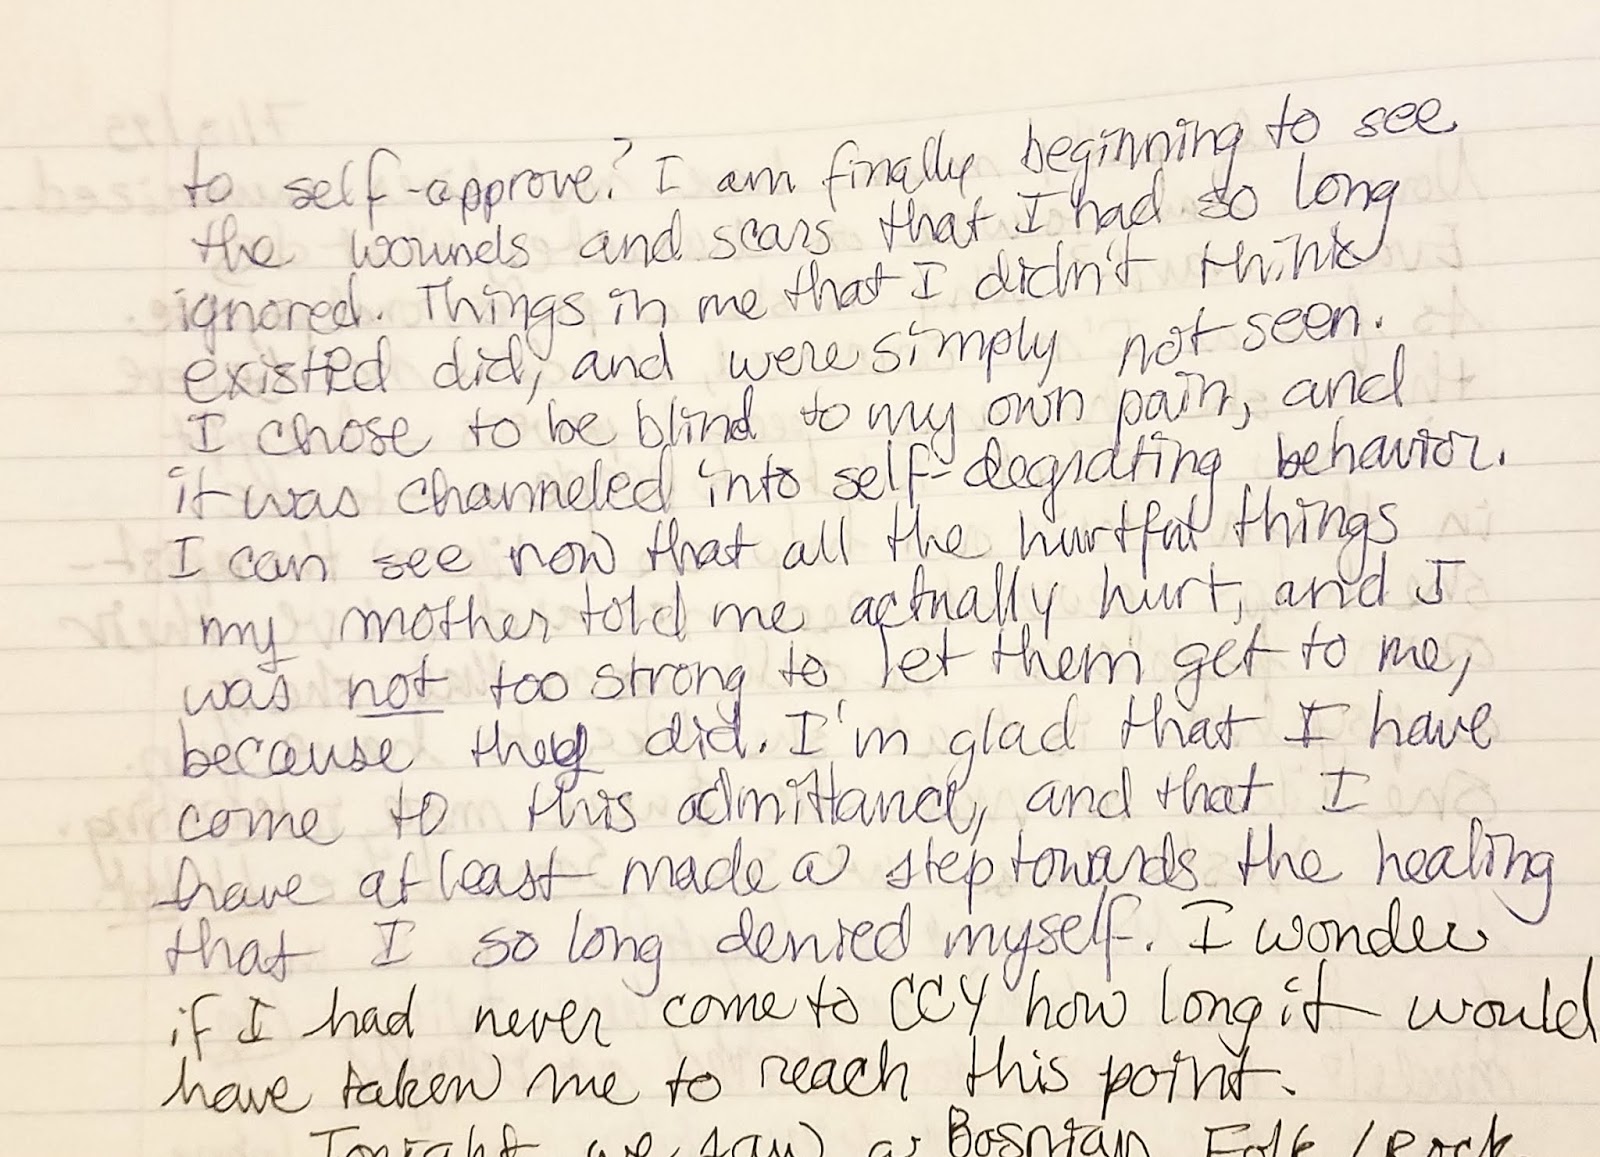 to self-approve? I am finally beginning to see
the wounds and scars that I had so long
ignored. Things in me that I didn't think
existed did, and were simply not seen.
I chose to be blind to my own pain, and
it was channeled into self-degrating behavior.
I can see now that all the hurtful things
my mother told me actually hurt, and I
was not too strong to let them get to me,
because they did. I'm glad that I have
come to this admittance, and that I
have at least made a step towards the healing
that I so long denied myself. I wonder
if I had never come to CCY how long it would
have taken me to reach this point.
Tonight we saw a Bosnian Folk/Rock